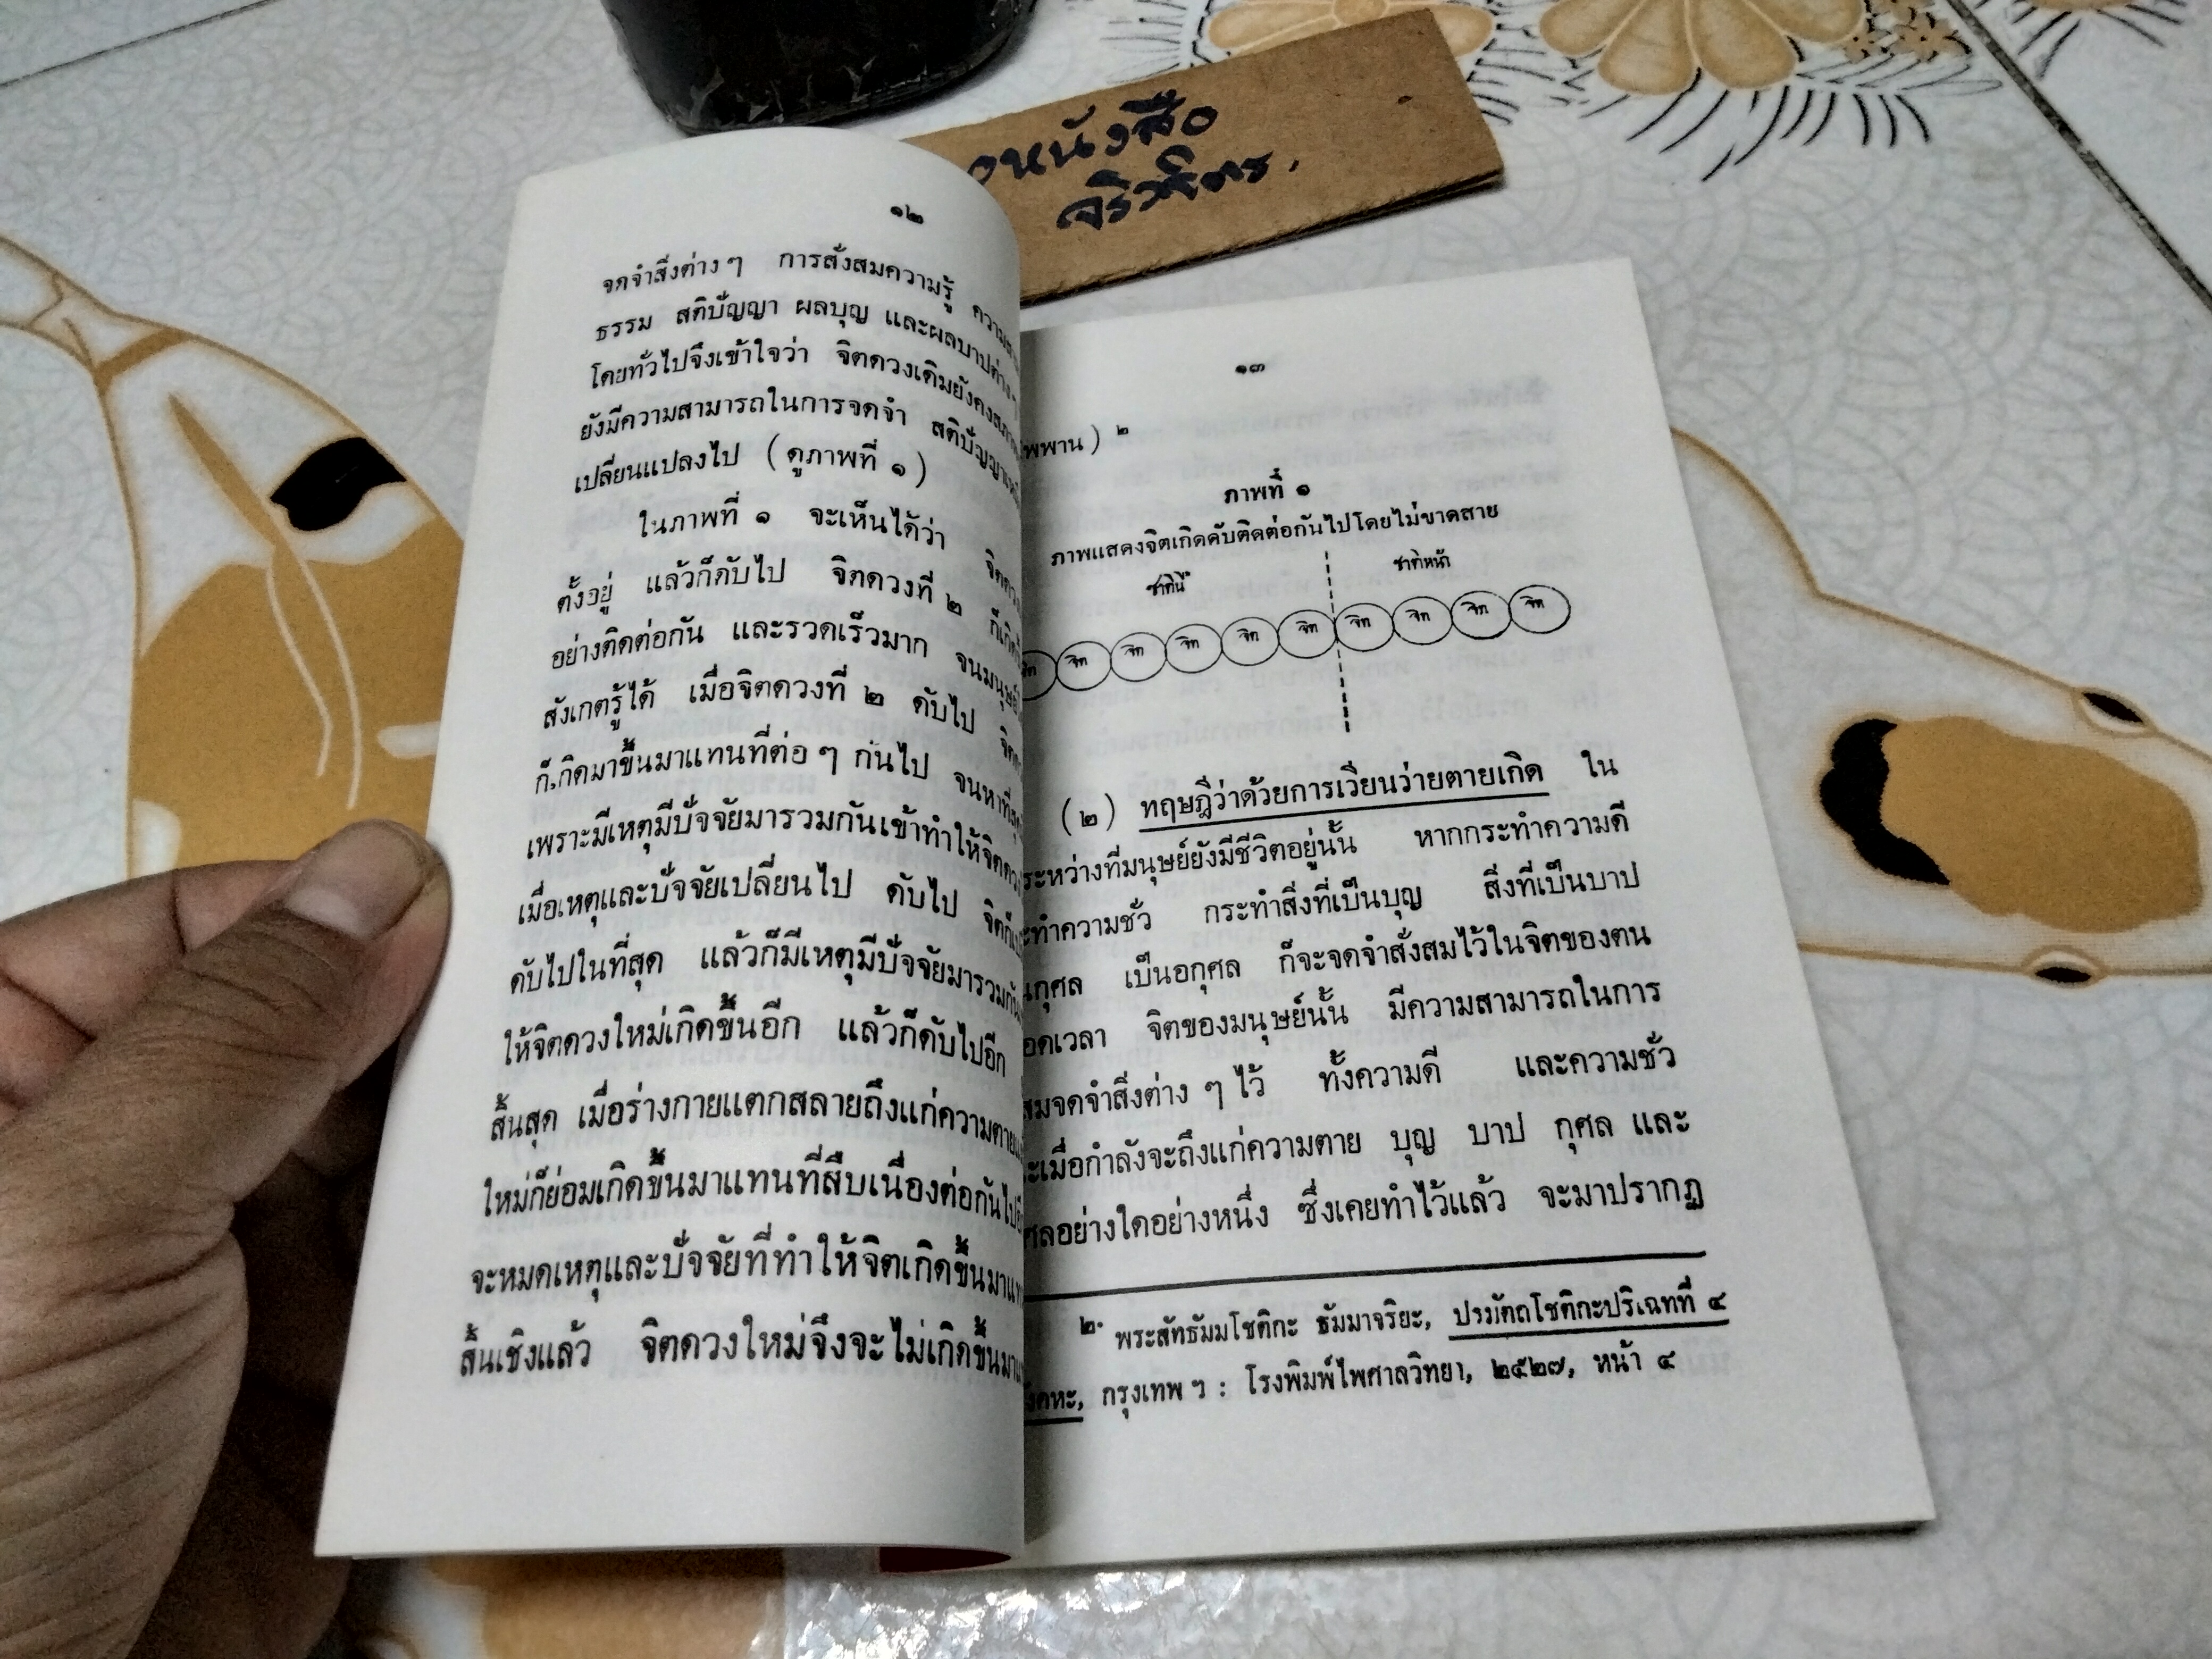 หนังสือ
๑๒
จกจำสิ่งต่าง ๆ การสั่งสมความรู้
ธรรม สติปัญญา ผลบุญ และผลบาปต่าง ๆ
โดยทั่วไปจึงเข้าใจว่า จิตดวงเดิมยังคงสภาพ
ยังมีความสามารถในการจดจำ สติปัญญา
เปลี่ยนแปลงไป (ดูภาพที่ ๑)
ในภาพที่ ๑ จะเห็นได้ว่า
ตั้งอยู่ แล้วก็ดับไป จิตดวงที่ ๒ ก็เกิด
อย่างติดต่อกัน และรวดเร็วมาก จนมนุษย์
สังเกตรู้ได้ เมื่อจิตดวงที่ ๒ ดับไป
ก็เกิดมาขึ้นมาแทนที่ต่อ ๆ กันไป จนหาที่สุด
เพราะมีเหตุมีปัจจัยมารวมกันเข้าทำให้จิตดวง
เมื่อเหตุและปัจจัยเปลี่ยนไป ดับไป จิตก็
ดับไปในที่สุด แล้วก็มีเหตุมีปัจจัยมารวมกัน
ให้จิตดวงใหม่เกิดขึ้นอีก แล้วก็ดับไปอีก
สิ้นสุด เมื่อร่างกายแตกสลายถึงแก่ความตาย
ใหม่ก็ย่อมเกิดขึ้นมาแทนที่สืบเนื่องต่อกันไป
จะหมดเหตุและปัจจัยที่ทำให้จิตเกิดขึ้นมา
สิ้นเชิงแล้ว จิตดวงใหม่จึงจะไม่เกิดขึ้นมา
๑๓
พพาน) ๒
ภาพที่ ๑
ภาพแสดงจิตเกิดดับติดต่อกันไปโดยไม่ขาดสาย
ชาตินี้ ชาติหน้า
จิต จิต จิต จิต จิต จิต จิต จิต จิต
(๒) ทฤษฎีว่าด้วยการเวียนว่ายตายเกิด ใน
ระหว่างที่มนุษย์ยังมีชีวิตอยู่นั้น หากกระทำความดี
ะทำความชั่ว กระทำสิ่งที่เป็นบุญ สิ่งที่เป็นบาป
กุศล เป็นอกุศล ก็จะจดจำสั่งสมไว้ในจิตของตน
อดเวลา จิตของมนุษย์นั้น มีความสามารถในการ
สมจดจำสิ่งต่าง ๆ ไว้ ทั้งความดี และความชั่ว
ะเมื่อกำลังจะถึงแก่ความตาย บุญ บาป กุศล และ
ศลอย่างใดอย่างหนึ่ง ซึ่งเคยทำไว้แล้ว จะมาปรากฏ
๒. พระสัทธัมมโชติกะ ธัมมาจริยะ, ปรมัตถโชติกะปริเฉทที่ ๔
คหะ, กรุงเทพ ฯ : โรงพิมพ์ไพศาลวิทยา, ๒๕๒๗, หน้า ๔